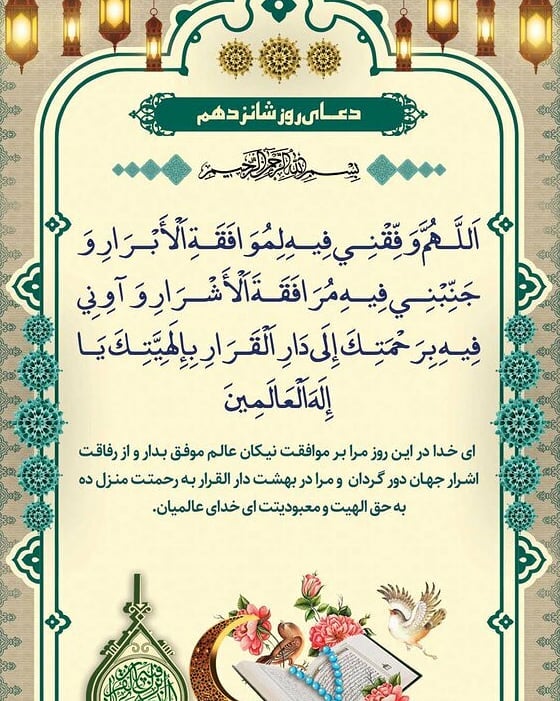 دعای روز شانزدهم
بسم الله الرحمن الرحیم
اَللَّهُمَّ وَفِّقْنِي فِيهِ لِمُوَافَقَةِ الْأَبْرَارِ وَ
جَنِّبْنِي فِيهِ مُرَافَقَةَ الْأَشْرَارِ وَ آوِنِي
فِيهِ بِرَحْمَتِكَ إِلَى دَارِ الْقَرَارِ بِإِلَهِيَّتِكَ يَا
إِلَهَ الْعَالَمِينَ
ای خدا در این روز مرا بر موافقت نیکان عالم موفق بدار و از رفاقت
اشرار جهان دور گردان و مرا در بهشت دار القرار به رحمتت منزل ده
به حق الهیت و معبودیتت ای خدای عالمیان.